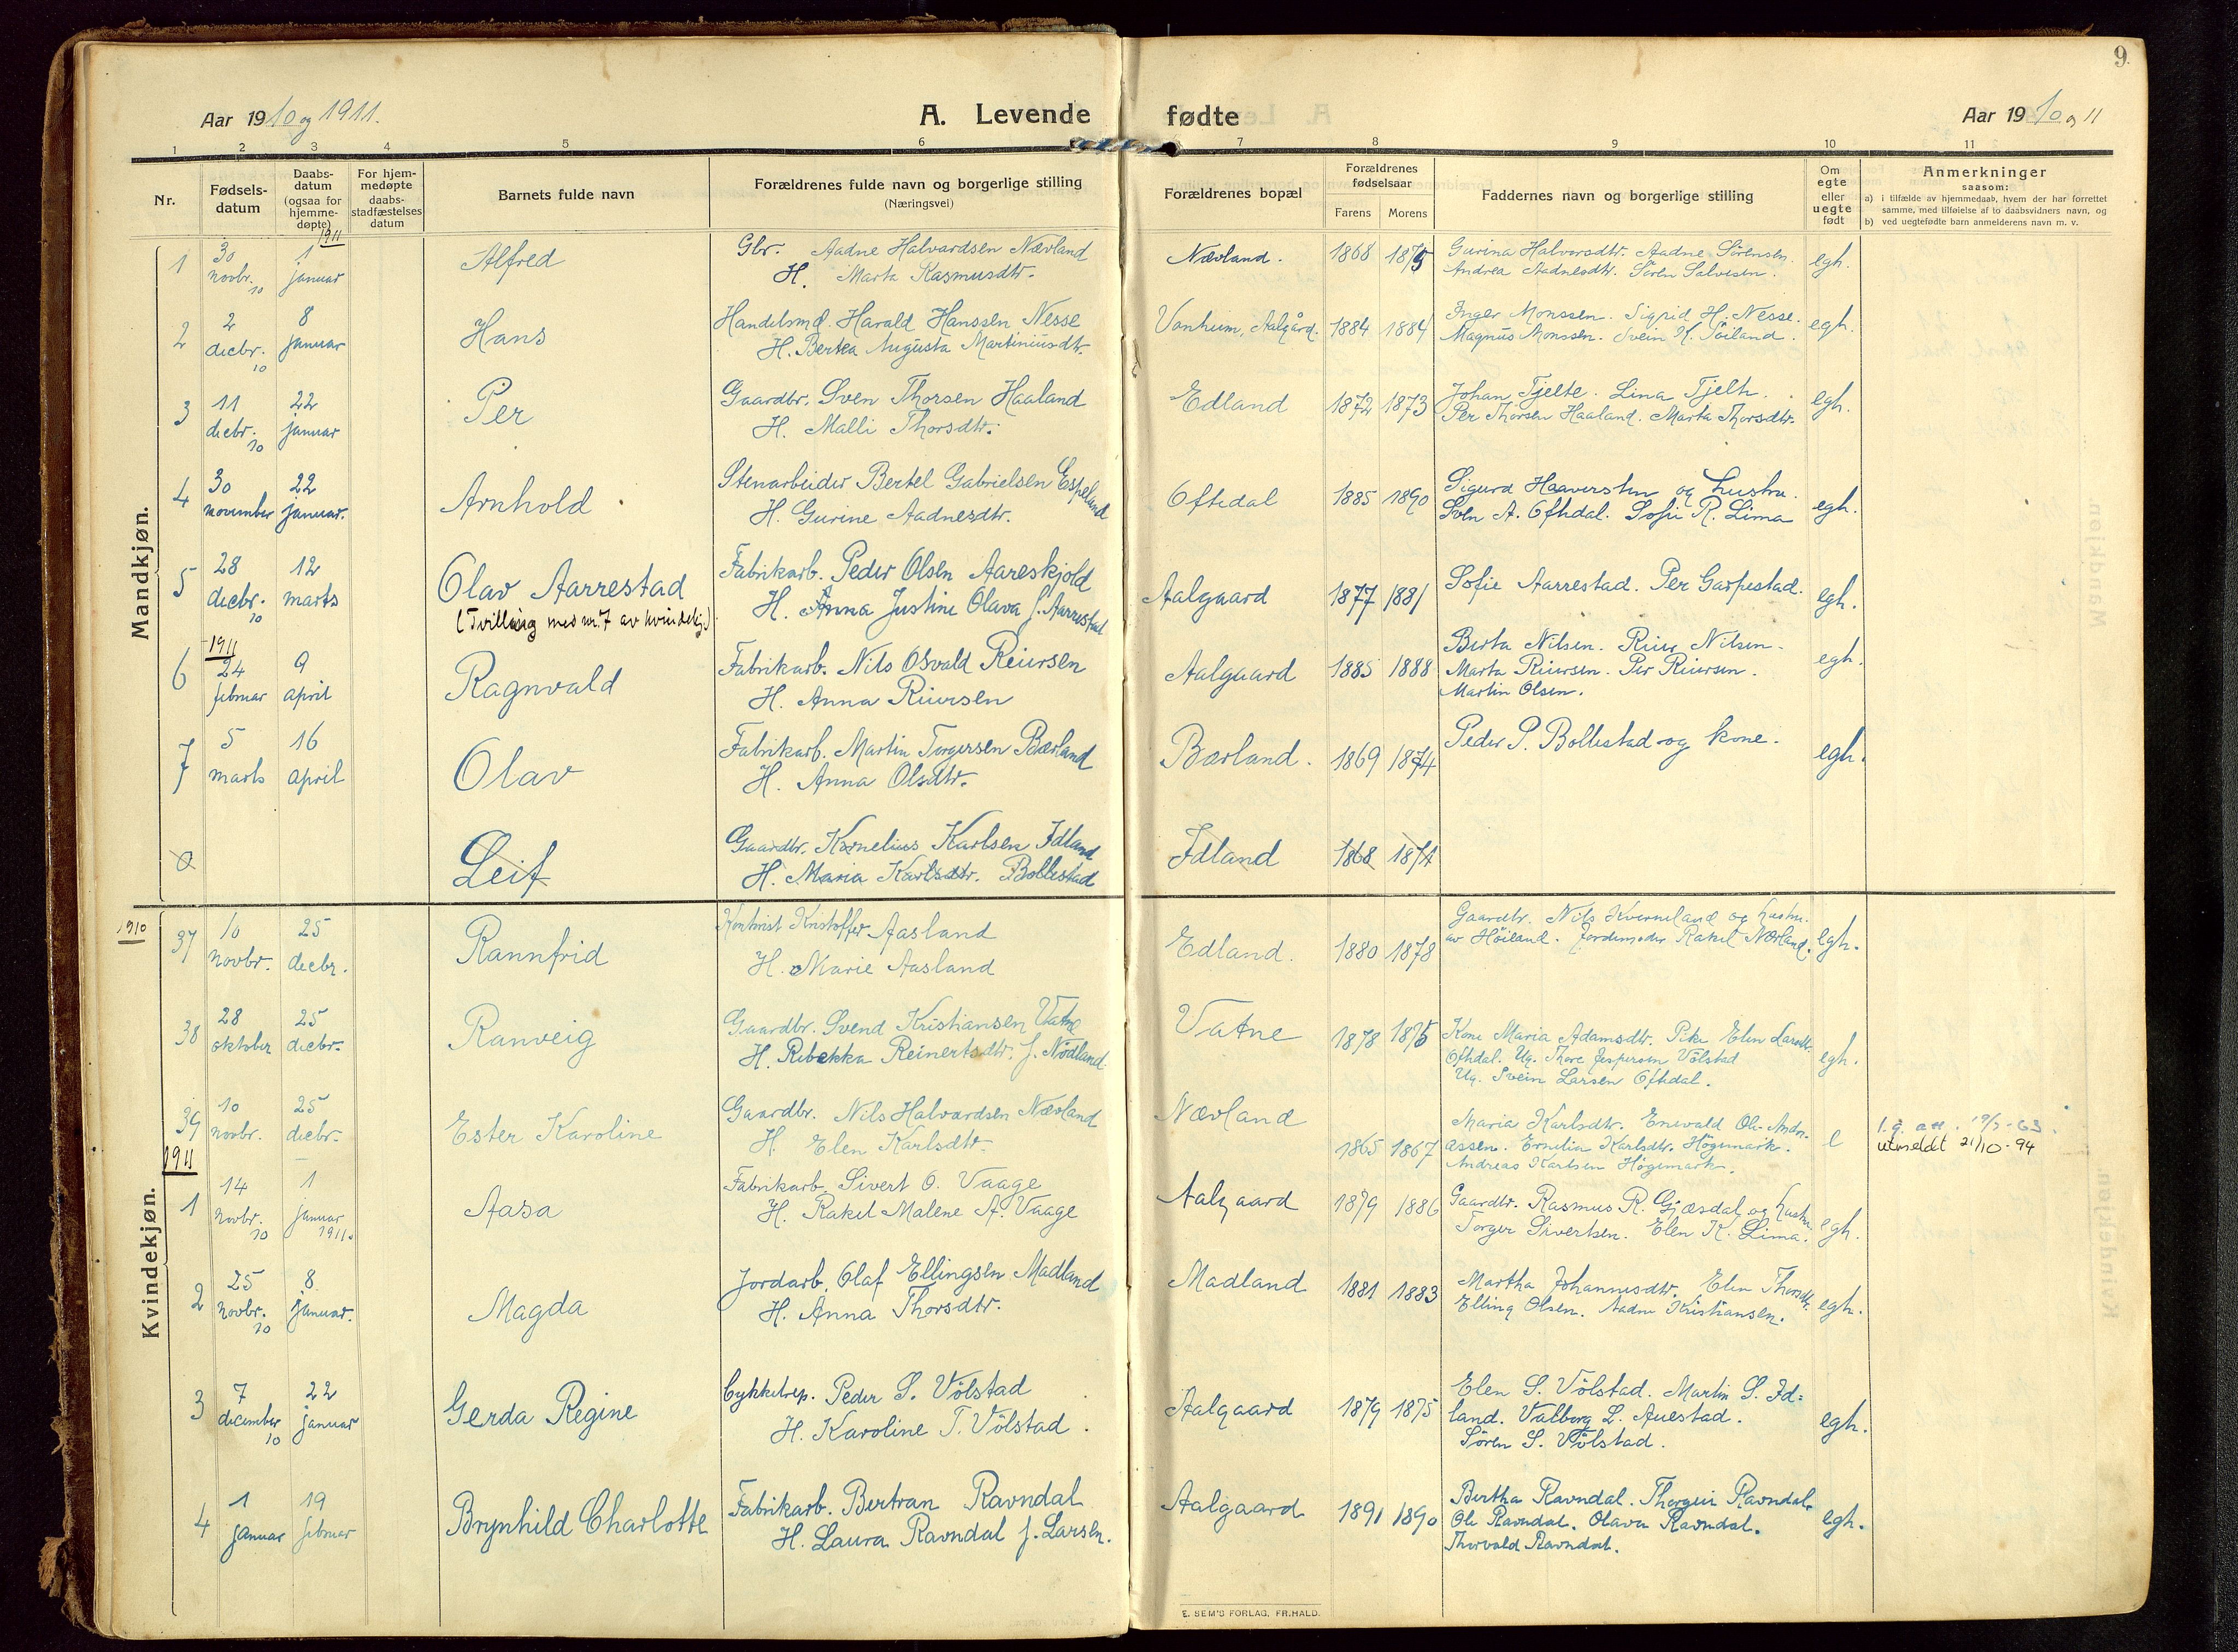 9.
Aar 1910 og 1911.
A. Levende fødte
Aar 1910 og 11
1 2 3 4 5 6 7 8 9 10 11
Nr.
Fødsels-
datum
Daabs-
datum
(ogsaa for
hjemme-
døpte)
For hjem-
medøpte
daabs-
stadfæstelses
datum
Barnets fulde navn
Forældrenes fulde navn og borgerlige stilling
(Næringsvei)
Forældrenes bopæl
Forældrenes
fødselsaar
Farens Morens
Faddernes navn og borgerlige stilling
Om
egte
eller
uegte
født
Anmerkninger
saasom:
a) i tilfælde av hjemmedaab, hvem der har forrettet
samme, med tilføielse af to daabsvidners navn, og
b) ved uegtefødte barn anmelderens navn m. v.
Mandkjøn.
1911
1 30 novbr. 10 1 januar Alfred
Gbr. Aadne Halvardsen Nævland
H. Marta Rasmusdtr.
Nævland. 1868 1875
Gurina Halvorsdtr. Aadne Sörensen.
Andrea Aadnesdtr. Sören Salvesen.
egh.
2 2 decbr. 10 8 januar Hans
Handelsmd. Harald Hanssen Nesse
H. Bertea Augusta Martiniusdtr.
Vanheim, Aalgård. 1884 1884
Inger Monssen. Sigrid H. Nesse.
Magnus Monssen. Svein K. Söiland.
egh.
3 11 decbr. 10 22 januar Per
Gaardbr. Sven Thorsen Haaland
H. Malli Thorsdtr.
Edland 1872 1873
Johan Tjelte. Lina Tjelth.
Per Thorsen Haaland. Marta Thorsdtr.
egh.
4 30 november 22 januar. Arnhold
Stenarbeider Bertel Gabrielsen Espeland
H. Gurine Aadnesdtr.
Oftedal 1885 1890
Sigurd Haaversten og hustru.
Sven A. Oftedal. Sofie R. Lima
egh.
5 28 decbr. 10 12 marts Olav Aarrestad
(Tvilling med nr. 7 av kvindekj.)
Fabrikarb. Peder Olsen Aareskjold
H. Anna Justine Olava f. Aarrestad
Aalgaard 1877 1881
Sofie Aarrestad. Per Garpestad.
egh.
1911
6 24 februar 9 april Ragnvald
Fabrikarb. Nils Osvald Reiersen
H. Anna Reiersen
Aalgaard 1885 1888
Berta Nilsen. Reier Nilsen.
Marta Reiersen. Per Reiersen.
Martin Olsen.
egh.
7 5 marts 16 april Olav
Fabrikarb. Martin Torgersen Bærland
H. Anna Olsdtr.
Bærland. 1869 1874
Peder P. Bollestad og kone.
egh.
Leif
Gaardbr. Kornelius Karlsen Idland
H. Maria Karlsdtr. Bollestad
Idland 1868 1874
Kvindekjøn.
1910
37 10 novbr. 25 decbr. Rannfrid
Kristoffer Aasland
H. Marie Aasland
Edland. 1880 1878
Gaardbr. Nils Kverneland og hustru.
av Höiland. Jordemoder Rakel Nærland.
egh.
38 28 oktober 25 decbr. Ranveig
Gaardbr. Svend Kristiansen Vatne
H. Rebekka Reinertsdtr. f. Nödland
Vatne 1878 1875
Kone Maria Adamsdtr. Pike Elen Larsdtr.
Oftedal. Ug. Thore Jespersen Völstad
Ug. Svein Larsen Oftedal.
egh.
39 10 novbr. 25 decbr. Ester Karoline
Gaardbr. Nils Halvardsen Nævland
H. Elen Karlsdtr.
Nævland 1865 1867
Maria Karlsdtr. Enevald Ol. Andre-
assen. Ernelia Karlsdtr. Högemark.
Andreas Karlsen Högemark.
e
utmeldt 21/10-94
1911
1 14 novbr. 10 1 januar 1911. Aasa
Fabrikarb. Sivert O. Vaage
H. Rakel Malene A. Vaage
Aalgaard 1879 1886
Gaardbr. Rasmus R. Gjæsdal og hustru.
Torger Sivertsen. Elen K. Lima.
egh.
2 25 novbr. 10 8 januar. Magda
Jordarb. Olaf Ellingsen Madland
H. Anna Thorsdtr.
Madland 1881 1883
Martha Johannesdtr. Elen Thorsdtr.
Elling Olsen. Aadne Kristiansen.
egh.
3 7 december 10 22 januar Gerda Regine
Cykkelrep. Peder S. Völstad
H. Karoline T. Völstad.
Aalgaard 1879 1875
Elen S. Völstad. Martin S. Id=
land. Valborg L. Auestad.
Sören S. Völstad.
egh.
4 1 januar 19 februar Brynhild Charlotte
Fabrikarb. Bertran Ravndal
H. Laura Ravndal f. Larsen.
Aalgaard 1891 1890
Bertha Ravndal. Thorgeir Ravndal.
Ole Ravndal. Olava Ravndal.
Thorvald Ravndal.
egh.
E. SEM'S FORLAG, FR.HALD.